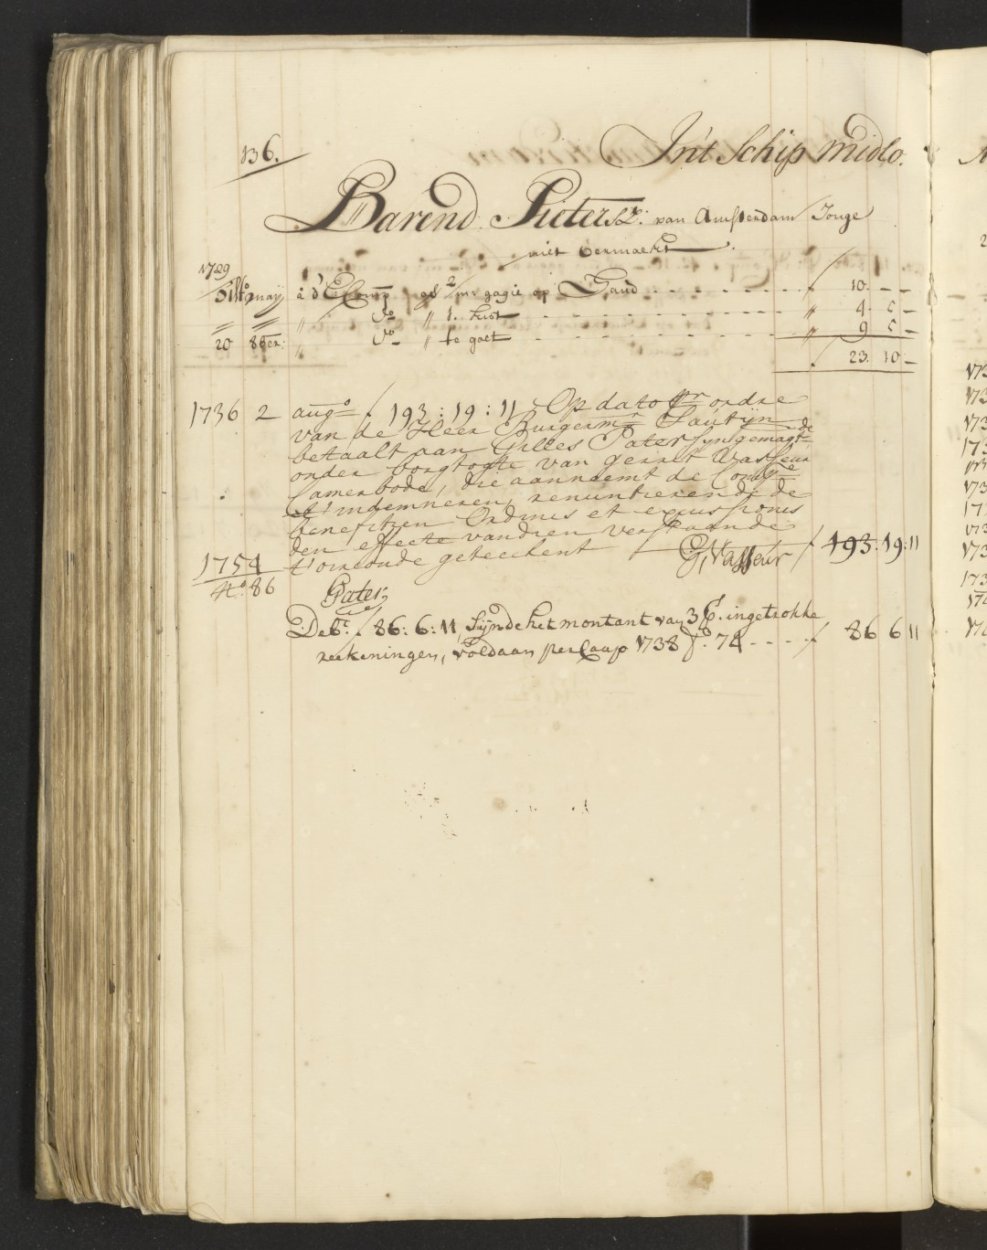 136. In't Schip Midlo.
Barend Pietersz: van Amsterdam Jonge
niet vermaekt
1729
may à d'E Comp 2 gagie op hand 10 - -
" " do " 1. kist " 4. 5 -
20 do " 1e " 9 5 -
23. 10 -
1736 2 augo f 193:19:11 Op dato pr ordre
van de Heer Burgermr Sautijn
betaalt aan Gilles Pater sijn gemagtde
onder borgtogte van gerrit Vasseur
Camerbode, die aanneemt de Compe
t' indemneren, renuntierende de
beneficien Ordinis et excussionis
den effecte vandien verstaande
t' oirconde geteekent G, Vasseur f 193:19:11
1754
No: 86 Pater,
Debt. f 86:6:11, Sijnde het montant van 3 p. ingetrokke
reekeningen, voldaan per Caap 1738 fo. 74 - - - - f 86 6 11